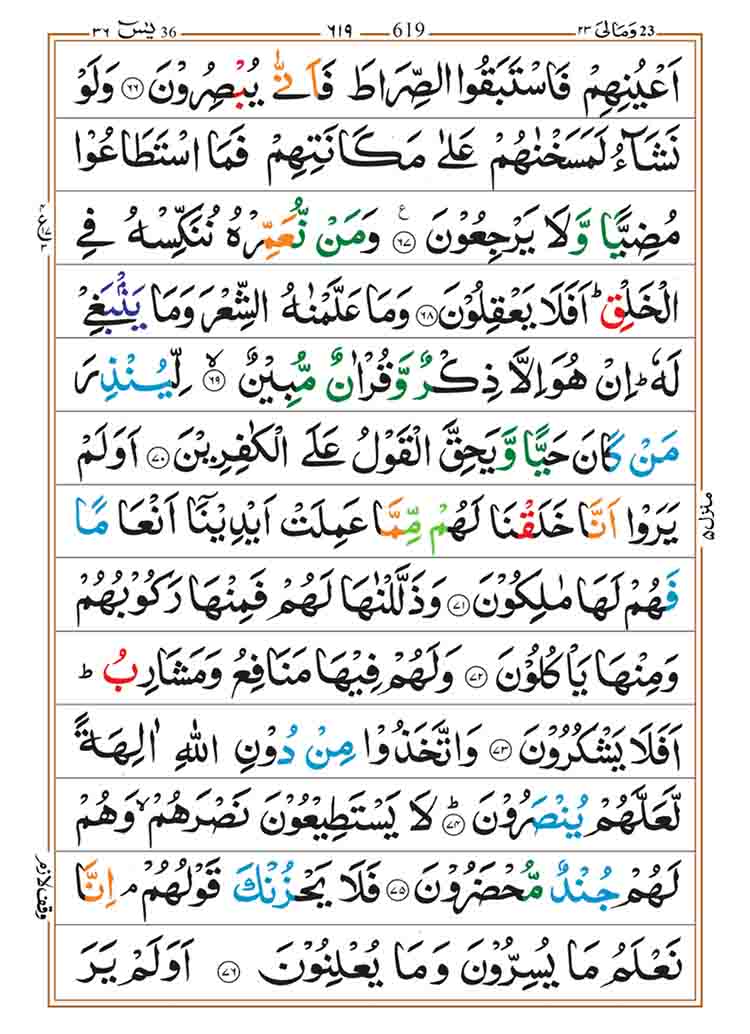 36 يٰسٓ ٣٦ 619 ٦١٩ 23 وَمَالِىَ ٢٣
اَعۡيُنِهِمۡ فَاسۡتَبَقُوا الصِّرَاطَ فَاَنّٰى يُبۡصِرُوۡنَ ﴿۶۶﴾ وَلَوۡ
نَشَآءُ لَمَسَخۡنٰهُمۡ عَلٰى مَكَانَتِهِمۡ فَمَا اسۡتَطَاعُوۡا
مُضِيًّا وَّلَا يَرۡجِعُوۡنَ ﴿۶۷﴾ ع وَمَنۡ نُّعَمِّرۡهُ نُنَكِّسۡهُ فِى
الۡخَـلۡقِ ؕ اَفَلَا يَعۡقِلُوۡنَ ﴿۶۸﴾ وَمَا عَلَّمۡنٰهُ الشِّعۡرَ وَمَا يَنۡۢبَغِىۡ
لَهٗ ؕ اِنۡ هُوَ اِلَّا ذِكۡرٌ وَّقُرۡاٰنٌ مُّبِيۡنٌ ۙ ﴿۶۹﴾ لِّيُنۡذِرَ
مَنۡ كَانَ حَيًّا وَّيَحِقَّ الۡقَوۡلُ عَلَى الۡكٰفِرِيۡنَ ﴿۷۰﴾ اَوَلَمۡ
يَرَوۡا اَنَّا خَلَقۡنَا لَهُمۡ مِّمَّا عَمِلَتۡ اَيۡدِيۡنَاۤ اَنۡعَامًا
فَهُمۡ لَهَا مٰلِكُوۡنَ ﴿۷۱﴾ وَذَلَّـلۡنٰهَا لَهُمۡ فَمِنۡهَا رَكُوۡبُهُمۡ
وَمِنۡهَا يَاۡكُلُوۡنَ ﴿۷۲﴾ وَلَهُمۡ فِيۡهَا مَنَافِعُ وَمَشَارِبُ ؕ
اَفَلَا يَشۡكُرُوۡنَ ﴿۷۳﴾ وَاتَّخَذُوۡا مِنۡ دُوۡنِ اللّٰهِ اٰلِهَةً
لَّعَلَّهُمۡ يُنۡصَرُوۡنَ ؕ ﴿۷۴﴾ لَا يَسۡتَطِيۡعُوۡنَ نَصۡرَهُمۡ ۙ وَهُمۡ
لَهُمۡ جُنۡدٌ مُّحۡضَرُوۡنَ ﴿۷۵﴾ فَلَا يَحۡزُنۡكَ قَوۡلُهُمۡ ۘ اِنَّا
نَعۡلَمُ مَا يُسِرُّوۡنَ وَمَا يُعۡلِنُوۡنَ ﴿۷۶﴾ اَوَلَمۡ يَرَ
منزل ۵
وقف لازم